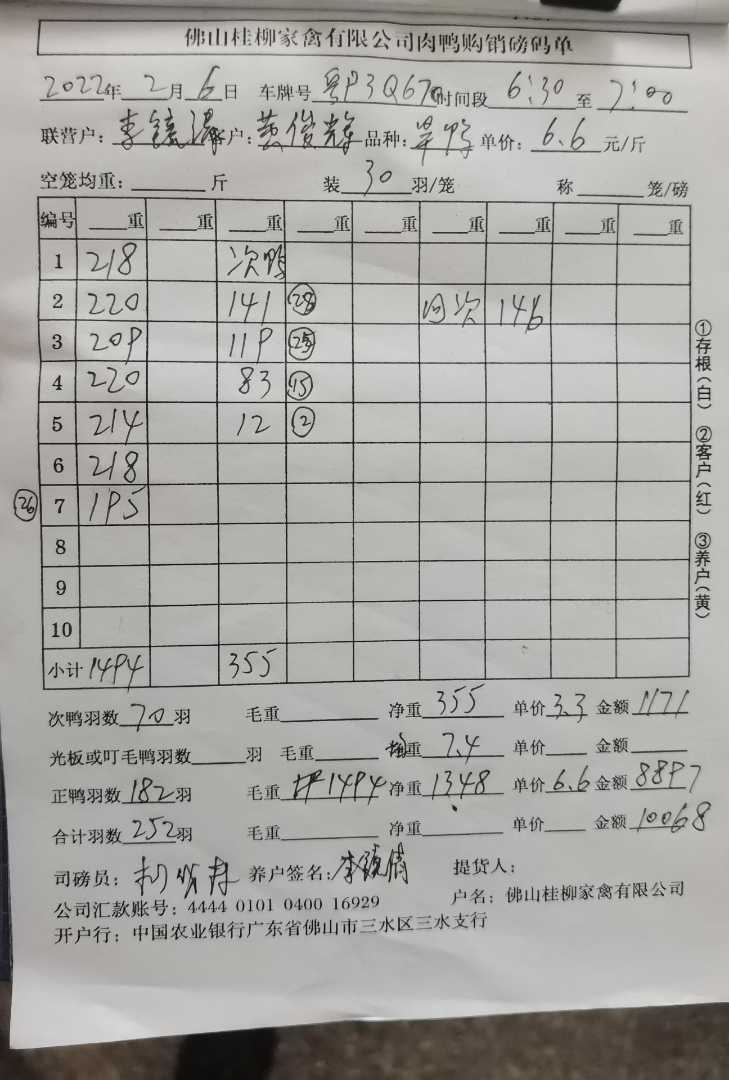 佛山桂柳家禽有限公司肉鸭购销磅码单
2022年2月6日 车牌号粤P3Q67 时间段6:30至7:00
联营户：李镜 户：黄俊辉 品种： 单价：6.6元/斤
空笼均重：____斤 装30羽/笼 称____笼/磅
编号 __重 __重 __重 __重 __重 __重 __重 __重 __重
1 218 次鸭
2 220 141 ㉘ 回次 146
3 209 119 ㉕
4 220 83 ⑮
5 214 12 ②
6 218
㉖ 7 195
8
9
10
小计 1494 355
次鸭羽数70羽 毛重____ 净重355 单价3.3 金额1171
光板或叮毛鸭羽数____羽 毛重____ 重7.4 单价____ 金额____
正鸭羽数182羽 毛重1494 净重1348 单价6.6 金额8897
合计羽数252羽 毛重____ 净重____ 单价____ 金额10068
司磅员： 养户签名：李镜 提货人：
公司汇款账号：4444 0101 0400 16929 户名：佛山桂柳家禽有限公司
开户行：中国农业银行广东省佛山市三水区三水支行
①存根（白） ②客户（红） ③养户（黄）